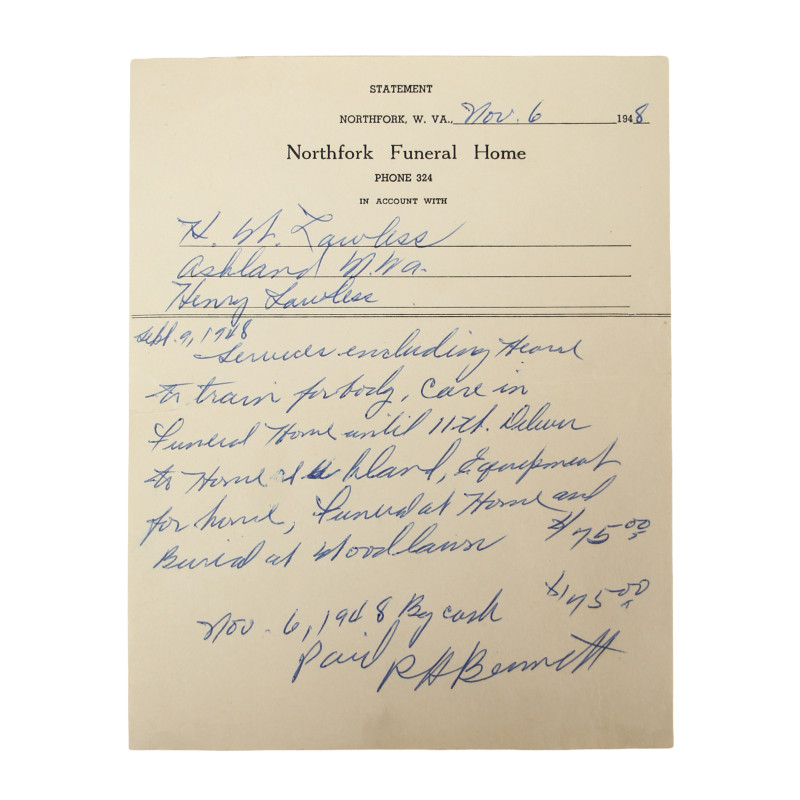 STATEMENT
NORTHFORK, W. VA., Nov. 6 1948
Northfork Funeral Home
PHONE 324
IN ACCOUNT WITH
H. W. Lawless
Ashland W.Va.
Henry Lawless
Sept. 9, 1948
Services encluding Hearse
to train for body, Care in
Funeral Home until 11th. Deliver
to Home Ashland, Equipment
for home, Funeral at Home and
Burial at Woodlawn $175.00
Nov. 6, 1948 By cash $175.00
Paid R H Bennett